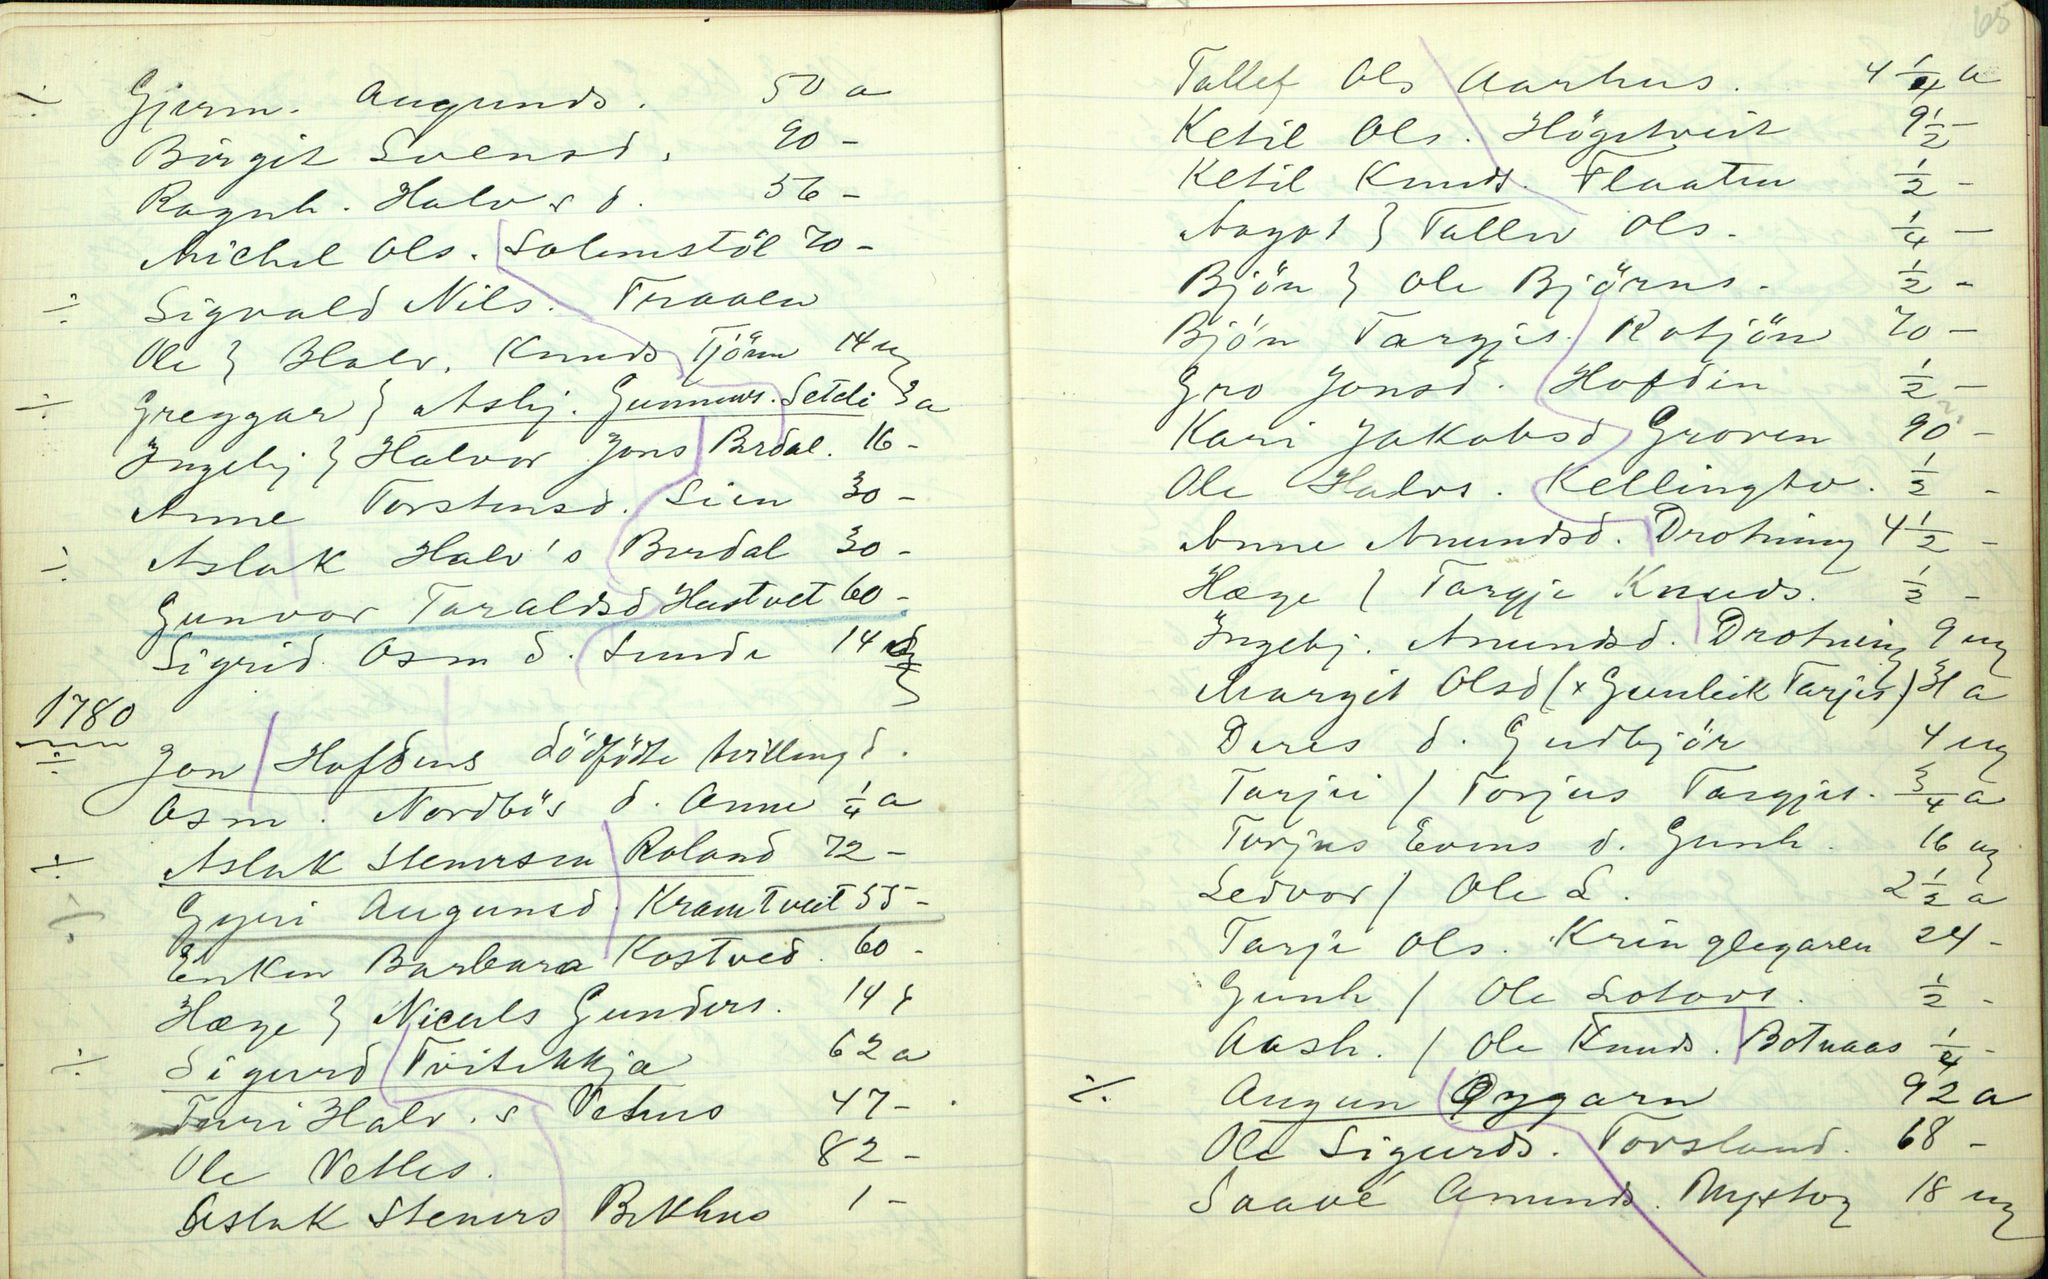 ÷ Gjerm. Augunds. 50 a
Birgit Svensd. 90 -
Ragnh. Halv s d. 56 -
Michel Ols. Solemstöl 70 -
÷ Sigvald Nils. Traaen
Ole } Halv. Knuds Tjönn 14 ug
÷ Greggar } Asbj. Gunnuvs. Setdi 3 a
Ingebj } Halvor Jons Brdal. 16 -
Anne Torstensd. Lien 30 -
÷ Aslak Halv's Burdal 30 -
Gunvor Taraldsd Hustvet 60 -
Sigrid Osm d. Lunde 14
1780
÷ Jon Hofdens dödfödte tvilling d.
Osm. Nordbös d. Anne 1/4 a
÷ Aslak Stenersen Roland 72 -
÷ Gyri Augunsd. Kramtveit 55 -
Enken Barbara Kostved. 60 -
Hæge } Niculs Gunders. 14
÷ Sigurd Tvitekkja 62 a
Turi Halv. s Vehus 47 -
Ole Vetles. 82 -
Aslak Steners Bekhus 1 -
65
Tallef Ols Aarhus. 4 1/4 a
Ketil Ols. Högetveit 9 1/2 -
Ketil Knuds. Flaaten 1/2 -
Aagot } Tallev Ols. 1/4 -
Bjön } Ole Björns. 1/2 -
Bjön Targjes. Kotjön 70 -
Gro Jonsd. Hofdin 1/2 -
Kari Jakobsd Groven 90 -
Ole Halvs. Kellingtv. 1/2 -
Anne Amundsd. Drotning 4 1/2 -
Hæge / Targje Knuds. 1/2 -
Ingebj. Amundsd. Drotning 9 ug
Margit Olsd (x Gunleik Tarjes) 31 a
Deres d. Gudbjör 4 ug
Tarjei / Torjus Targjes. 3/4 a
Torjus Evens d. Gunh. 16 ug
Ledvor / Ole L. 2 1/2 a
Tarje Ols. Kringlegaren 24 -
Gunh / Ole Lotovs. 1/2 -
Aash. / Ole Knuds. Botnaas 1/4 -
÷ Augun Øygarn 92 a
Ole Sigurds. Torsland. 68 -
Saavé Amunds. Nystog 18 ug